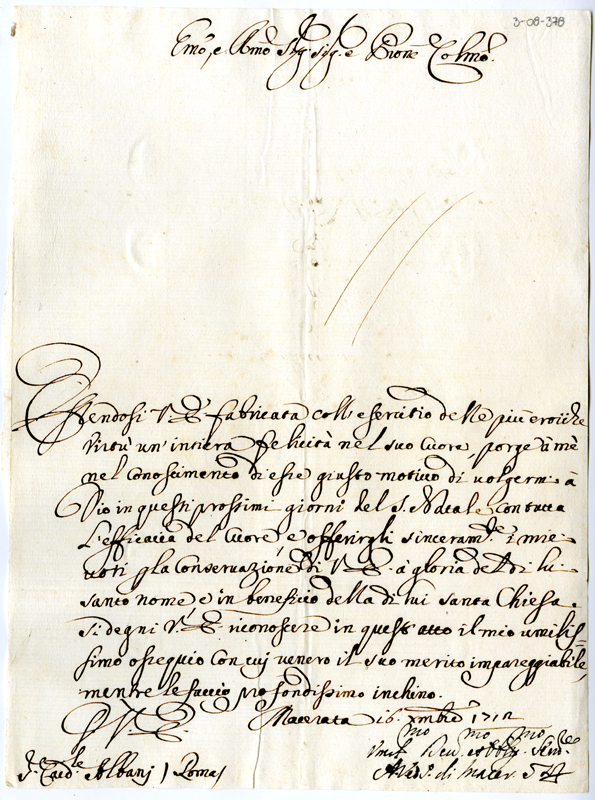 3-08-378
Em̃o, e Rm̃o Sig. Sig. e Prone Colm̃o.
Essendosi V. E. fabricata coll'esercitio delle più eroiche
Virtù un'intiera felicità nel suo Cuore, porge à mè
nel Conoscimento di esse giusto motivo di volgermi à
Dio in questi prossimi giorni del S. Natale con tutta
L'efficacia del Cuore, e offerirgli sinceram.te i miei
voti p la Conservazione di V. E. à gloria del di lui
santo nome e in beneficio della di lui santa Chiesa.
Si degni V. E. riconoscere in quest'atto il mio umilis
simo ossequio con cui venero il suo merito impareggiabile,
mentre le faccio profondissimo inchino.
D. V. E. Macerata 16. Xmbre 1712
mo mo mo
Dev. Obblig. Serv.re
S.r Card.le Albani / Roma / di Macer.